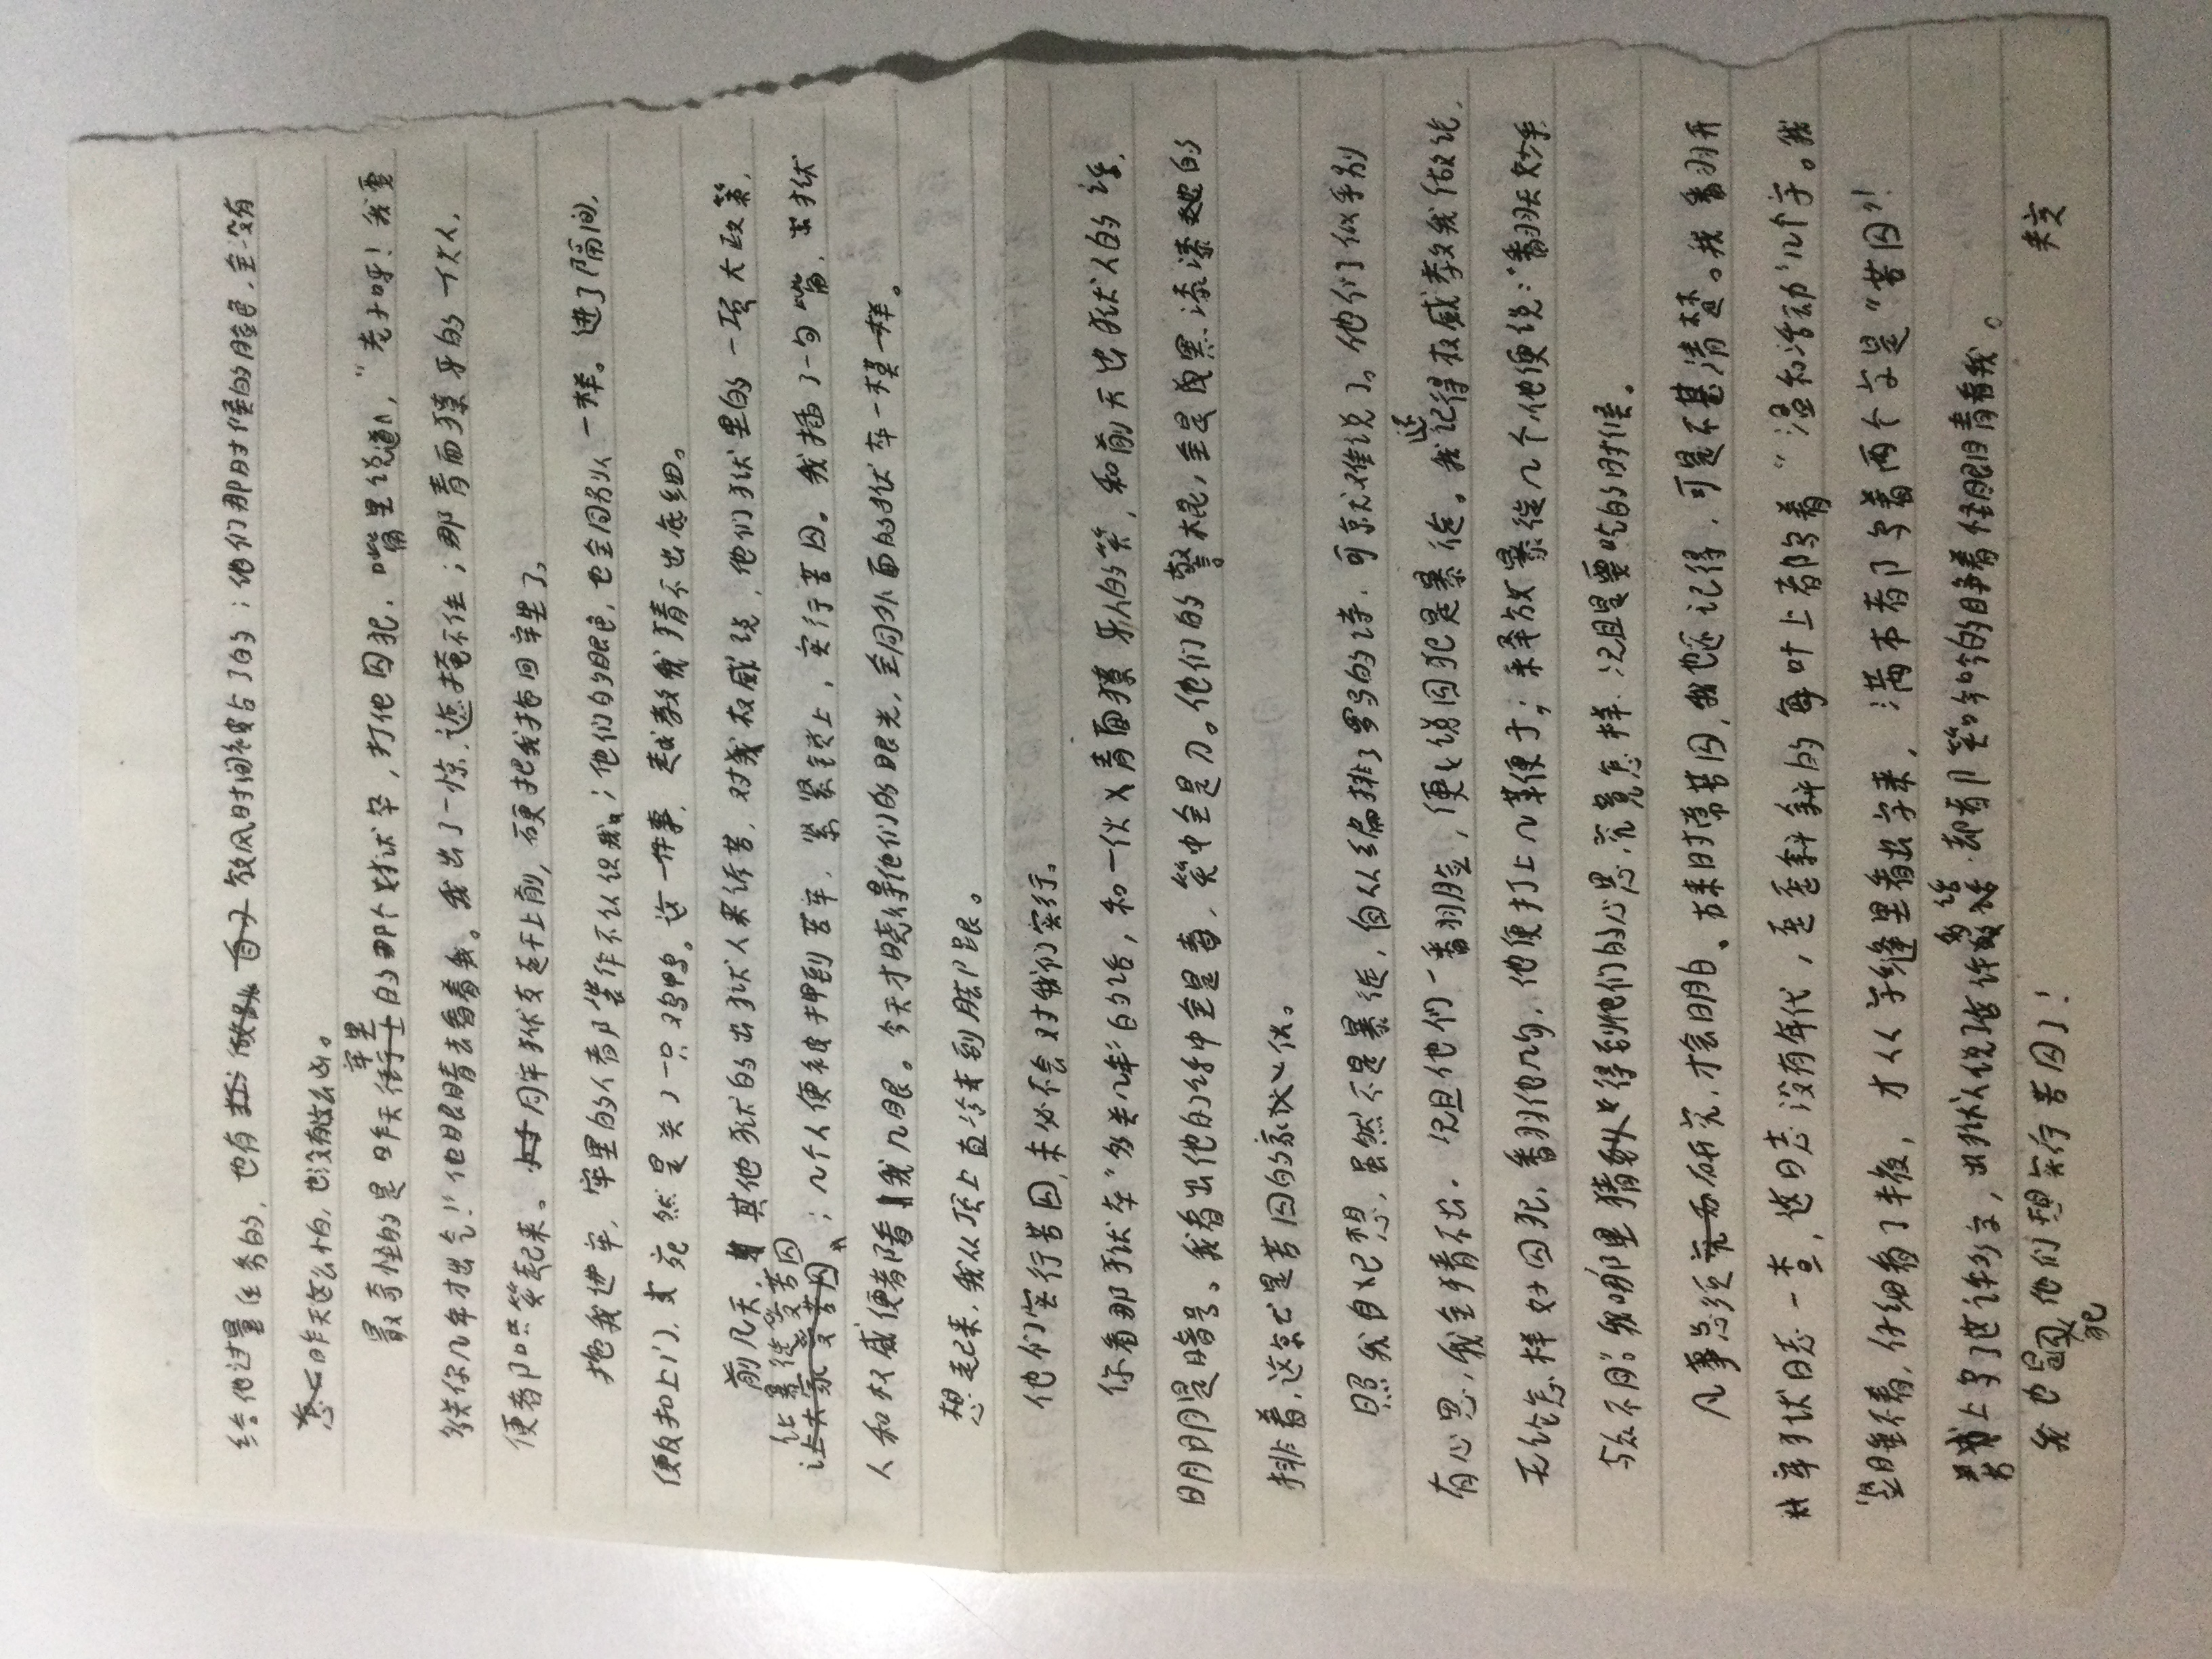 给他过量任务的，也有放风时间被占了的；他们那时候的脸色，全没有
昨天这么怕，也没有这么凶。
最奇怪的是昨天牢里的那个狱卒，打他囚犯，嘴里说道，“老子呀！我要
多关你几年才出气！”他眼睛去看着我。我出了一惊，遮掩不住；那青面獠牙的一伙人，
便都哄笑起来。同牢狱友赶上前，硬把我拖回牢里了。
拖我进牢，牢里的人都装作不认识我；他们的眼色，也全同别人一样。进了隔间，
便反扣上门，宛然是关了一只鸡鸭。这一件事，越教我猜不出底细。
前几天，其他狱的出狱人来诉苦，对我权威说，他们狱里的一项大政策，
让暴徒受苦囚；几个人便被押到苦牢，紧紧锁上，实行苦囚。我插了一句嘴，出狱
人和权威便都看我几眼。今天才晓得他们的眼光，全同外面的狱卒一模一样。
想起来，我从顶上直冷到脚跟。
他们实行苦囚，未必不会对我们实行。
你看那狱卒“多关几年”的话，和一伙青面獠牙人的笑，和前天出狱人的话，
明明是暗号。我看出他的话中全是毒，笑中全是刀。他们的警棍，全是黑漆漆的
排着，这就是苦囚的家伙。
照我自己想，虽然不是暴徒，自从编排了罗马的诗，可就难说了。他们似乎别
有心思，我全猜不出。况且他们一番羽脸，便说囚犯是暴徒。我还记得权威教我做论，
无论怎样好囚犯，番羽他几句，他便打上几鞭子；释放暴徒几个，他便说：“番羽天妙手
与众不同”。我哪里猜得到他们的心思，究竟怎样，况且是要吃的时候。
凡事总须研究，才会明白。古来时常苦囚，我也还记得，可是不甚清楚。我番羽开
牢狱日志一查，这日志没有年代，歪歪斜斜的每叶上都写着“温和活动”几个字。我
竖睡不着，仔细看了半夜，才从字缝里看出字来，满本都写着两个字是“苦囚”！
上写了这许多字，出狱人说了这许多话，却都笑吟吟的睁着怪眼睛看我。
我也是囚犯，他们想实行苦囚了！
未完